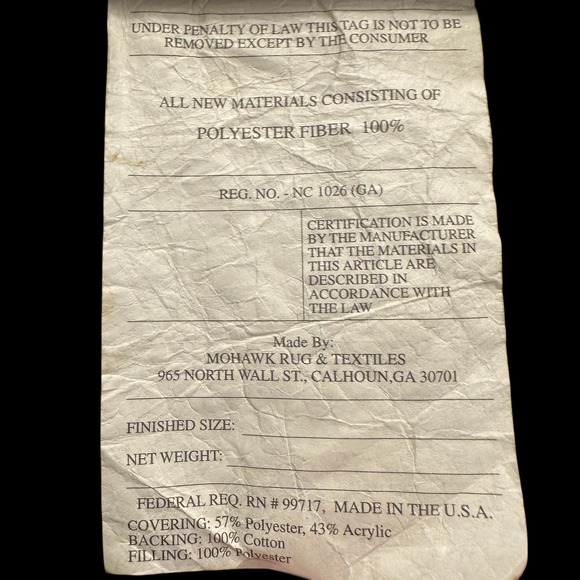 UNDER PENALTY OF LAW THIS TAG IS NOT TO BE
REMOVED EXCEPT BY THE CONSUMER
ALL NEW MATERIALS CONSISTING OF
POLYESTER FIBER 100%
REG. NO. - NC 1026 (GA)
CERTIFICATION IS MADE
BY THE MANUFACTURER
THAT THE MATERIALS IN
THIS ARTICLE ARE
DESCRIBED IN
ACCORDANCE WITH
THE LAW
Made By:
MOHAWK RUG & TEXTILES
965 NORTH WALL ST., CALHOUN,GA 30701
FINISHED SIZE:
NET WEIGHT:
FEDERAL REQ. RN # 99717, MADE IN THE U.S.A.
COVERING: 57% Polyester, 43% Acrylic
BACKING: 100% Cotton
FILLING: 100% Polyester